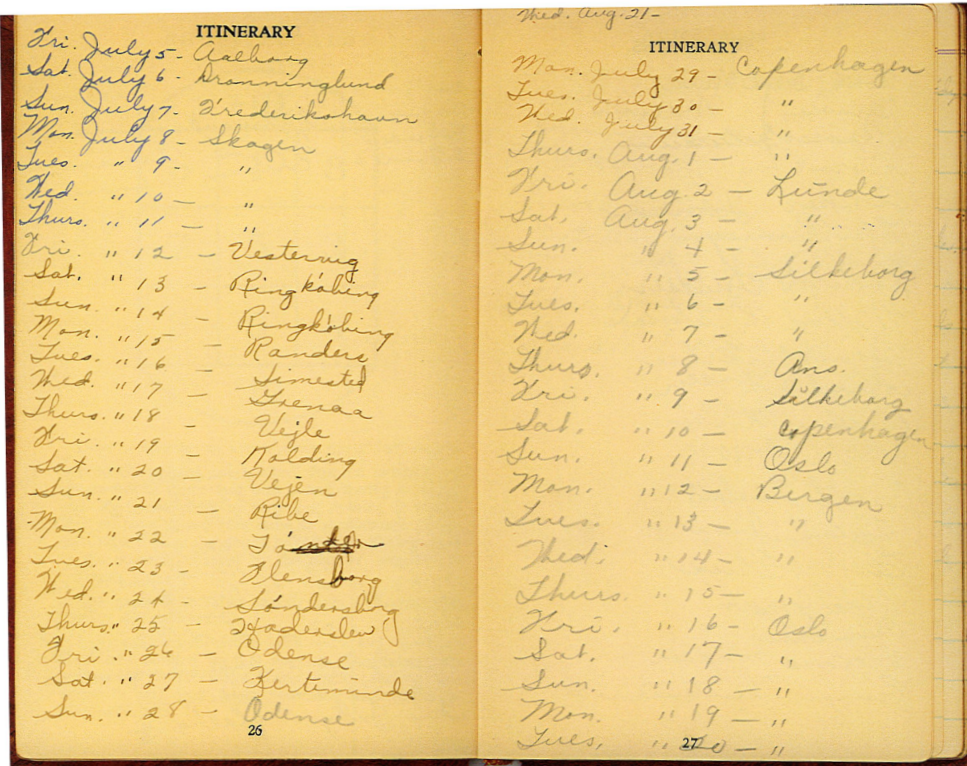 ITINERARY
Fri. July 5 - Aalborg
Sat. July 6 - Dronninglund
Sun. July 7 - Frederikshavn
Mon. July 8 - Skagen
Tues. " 9 - "
Wed. " 10 - "
Thurs. " 11 - "
Fri. " 12 - Vestervig
Sat. " 13 - Ringköbing
Sun. " 14 - Ringköbing
Mon. " 15 - Randers
Tues. " 16 - Simested
Wed. " 17 - Grenaa
Thurs. " 18 - Vejle
Fri. " 19 - Kolding
Sat. " 20 - Vejen
Sun. " 21 - Ribe
Mon. " 22 - Tönder
Tues. " 23 - Flensborg
Wed. " 24 - Söndersborg
Thurs. " 25 - Haderslev
Fri. " 26 - Odense
Sat. " 27 - Kerteminde
Sun. " 28 - Odense
26
Wed. Aug. 21 -
ITINERARY
Mon. July 29 - Copenhagen
Tues. July 30 - "
Wed. July 31 - "
Thurs. Aug. 1 - "
Fri. Aug. 2 - Lunde
Sat. Aug. 3 - "
Sun. " 4 - "
Mon. " 5 - Silkeborg
Tues. " 6 - "
Wed. " 7 - "
Thurs. " 8 - Ans.
Fri. " 9 - Silkeborg
Sat. " 10 - Copenhagen
Sun. " 11 - Oslo
Mon. " 12 - Bergen
Tues. " 13 - "
Wed. " 14 - "
Thurs. " 15 - "
Fri. " 16 - Oslo
Sat. " 17 - "
Sun. " 18 - "
Mon. " 19 - "
Tues. " 20 - "
27